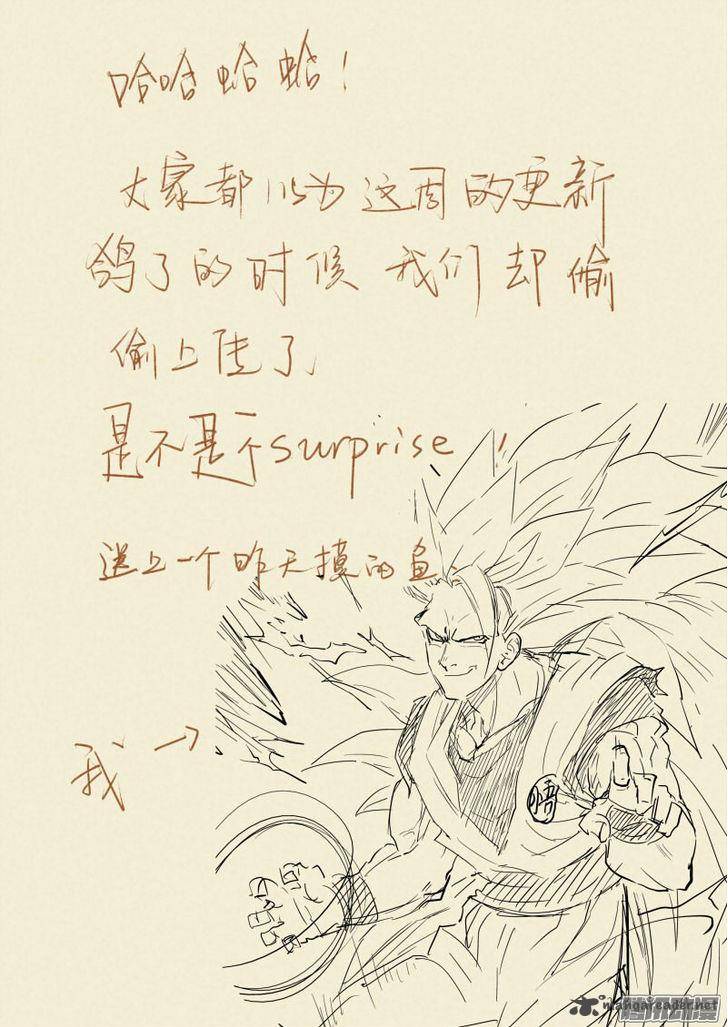 哈哈蛤蛤!
大家都以为这周的更新
鸽了的时候 我们却偷
偷上传了
是不是一个surprise!
送上一个昨天摸的鱼.
我→
悟
mangareader.net
腾讯动漫